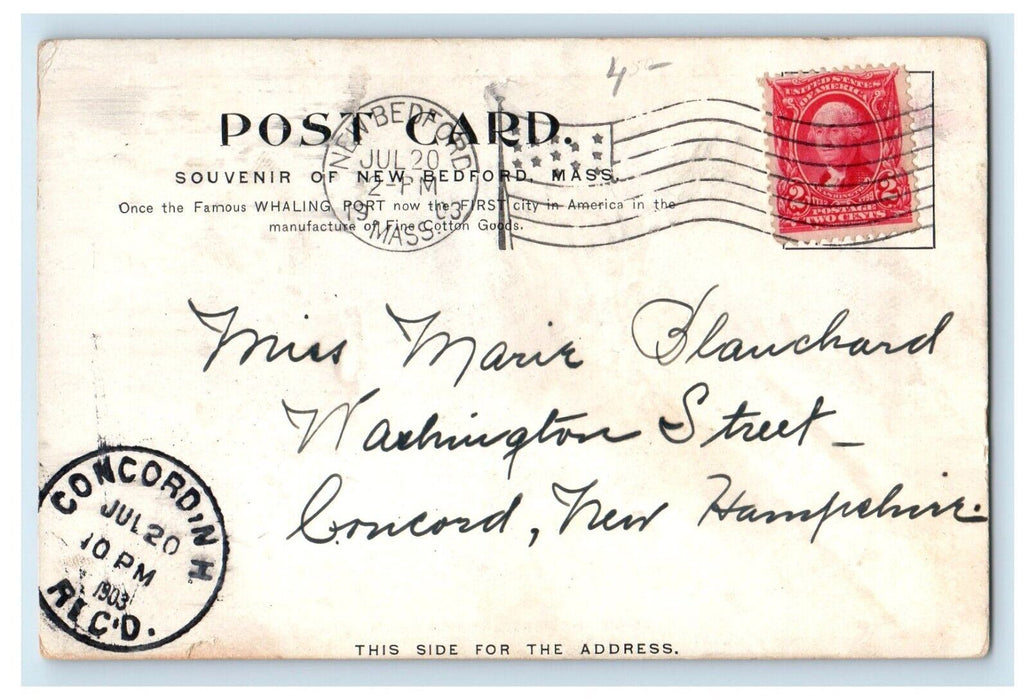 4 50
POST CARD.
SOUVENIR OF NEW BEDFORD, MASS.
Once the Famous WHALING PORT now the FIRST city in America in the
manufacture of Fine Cotton Goods.
NEW BEDFORD
JUL 20
2-PM
1903
MASS.
UNITED STATES
OF AMERICA
2 2
POSTAGE
TWO CENTS
Miss Marie Blanchard
Washington Street –
Concord, New Hampshire.
CONCORD, N H.
JUL 20
10 PM
1903
REC'D.
THIS SIDE FOR THE ADDRESS.